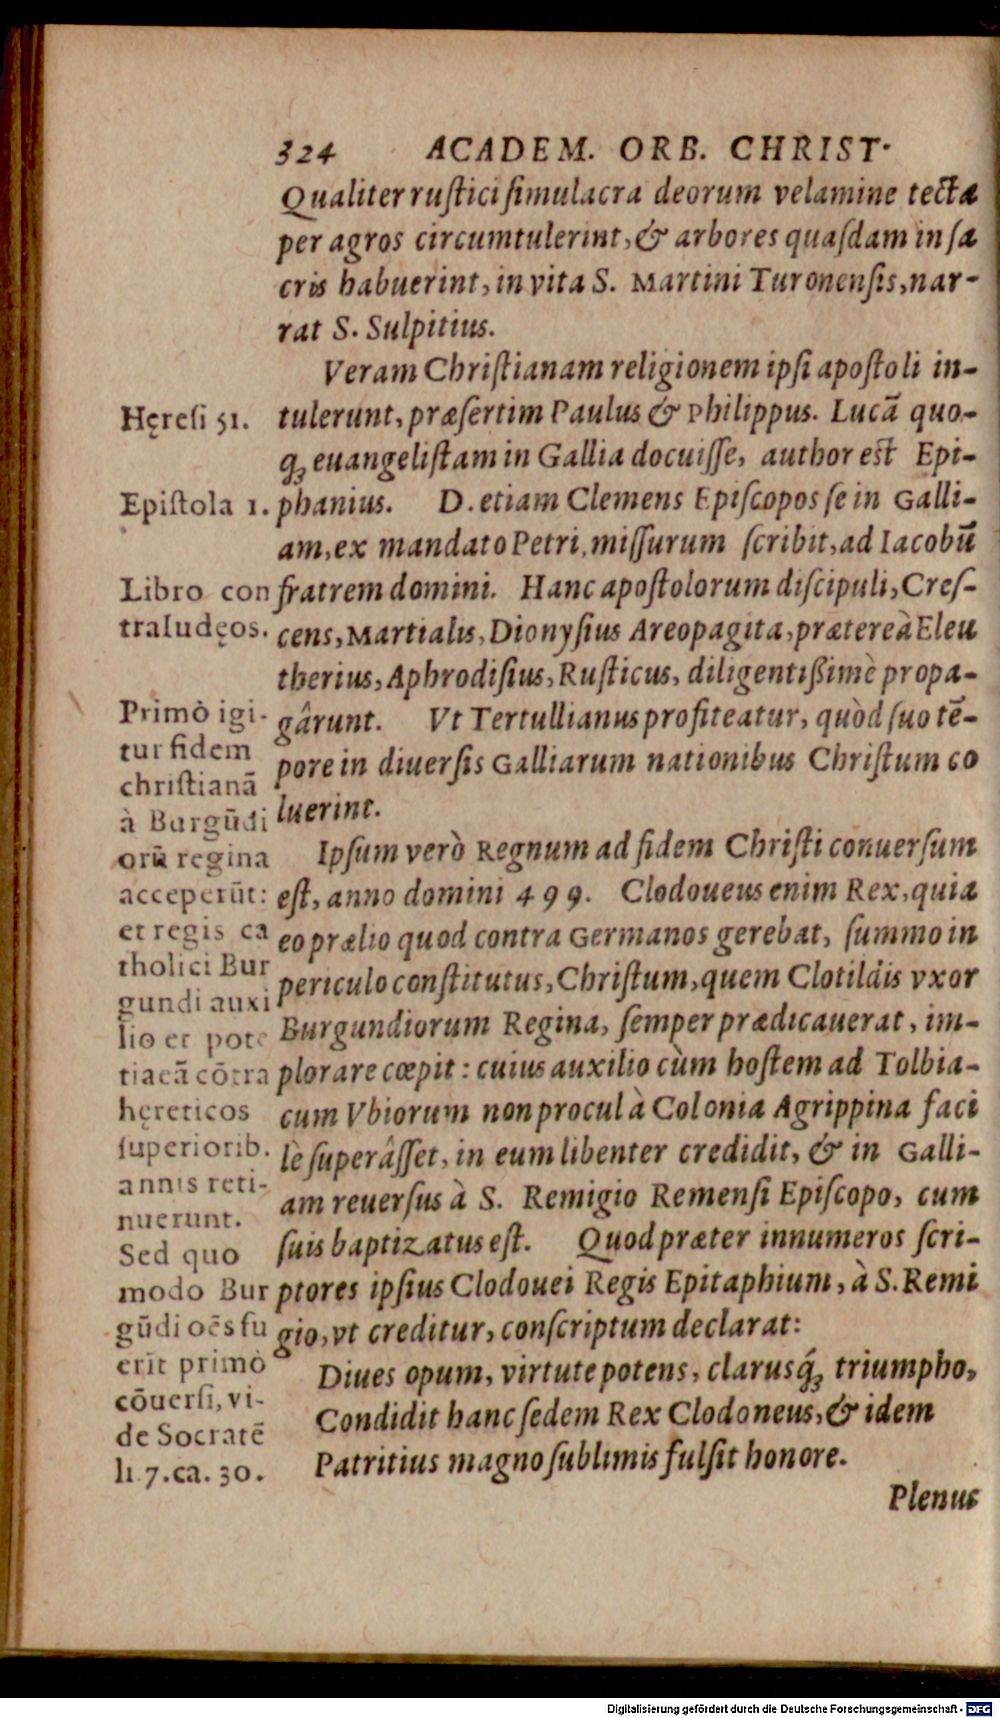 324 ACADEM. ORB. CHRIST.
Qualiter ruſtici ſimulacra deorum velamine tecta
per agros circumtulerint, & arbores quaſdam in ſa
cris habuerint, in vita S. Martini Turonenſis, nar-
rat S. Sulpitius.
Veram Chriſtianam religionem ipſi apoſtoli in-
tulerunt, præſertim Paulus & Philippus. Lucã quo-
qꝫ euangeliſtam in Gallia docuiſſe, author eſt Epi-
phanius. D. etiam Clemens Epiſcopos ſe in Galli-
am, ex mandato Petri, miſſurum ſcribit, ad Iacobũ
fratrem domini. Hanc apoſtolorum diſcipuli, Creſ-
cens, Martialis, Dionyſius Areopagita, prætereà Eleu
therius, Aphrodiſius, Ruſticus, diligentißimè propa-
gârunt. Vt Tertullianus profiteatur, quòd ſuo tẽ-
pore in diuerſis Galliarum nationibus Chriſtum co
luerint.
Ipſum verò Regnum ad fidem Chriſti conuerſum
eſt, anno domini 499. Clodoueus enim Rex, quia
eo prælio quod contra Germanos gerebat, ſummo in
periculo conſtitutus, Chriſtum, quem Clotildis vxor
Burgundiorum Regina, ſemper prædicauerat, im-
plorare cœpit: cuius auxilio cùm hoſtem ad Tolbia-
cum Vbiorum non procul à Colonia Agrippina faci
lè ſuperâſſet, in eum libenter credidit, & in Galli-
am reuerſus à S. Remigio Remenſi Epiſcopo, cum
ſuis baptizatus eſt. Quod præter innumeros ſcri-
ptores ipſius Clodouei Regis Epitaphium, à S. Remi
gio, vt creditur, conſcriptum declarat:
Diues opum, virtute potens, clarusq́ꝫ triumpho,
Condidit hanc ſedem Rex Clodoneus, & idem
Patritius magno ſublimis fulſit honore.
Plenus
Hęreſi 51.
Epiſtola 1.
Libro con
tra Iudęos.
Primò igi-
tur fidem
chriſtianã
à Burgũdi
orũ regina
acceperũt:
et regis ca
tholici Bur
gundi auxi
lio et pote
tiaeã cõtra
hęreticos
ſuperiorib.
annis reti-
nuerunt.
Sed quo
modo Bur
gũdi oẽs fu
erĩt primò
cõuerſi, vi-
de Socratẽ
li 7. ca. 30.
Digitalisierung gefördert durch die Deutsche Forschungsgemeinschaft - DFG